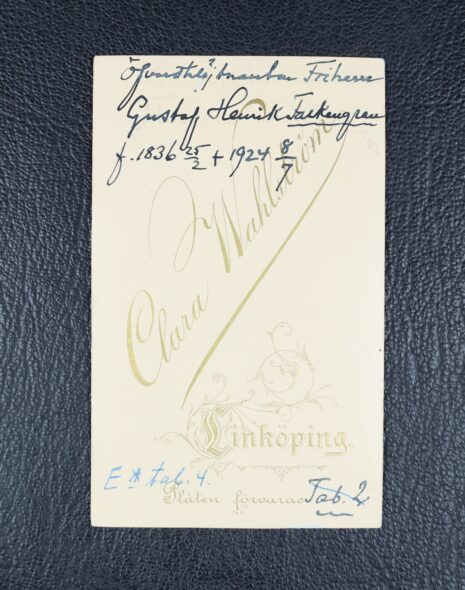 Öfverstelöjtnanten Friherre
Gustaf Henrik Falkengren
f. 1836 25/2 + 1924 8/7
Clara Wahlström
Linköping.
E * tab. 4.
Plåten förvaras Tab. 2